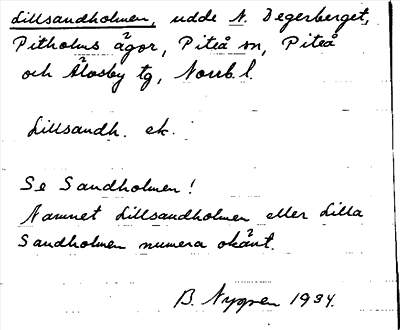 Lillsandholmen, udde N. Degerberget,
Pitholms ägor, Piteå sn, Piteå
och Älvsby tg, Norrb. l.
Lillsandh. ek.
Se Sandholmen!
Namnet Lillsandholmen eller Lilla
Sandholmen numera okänt.
B. Nygren 1934.